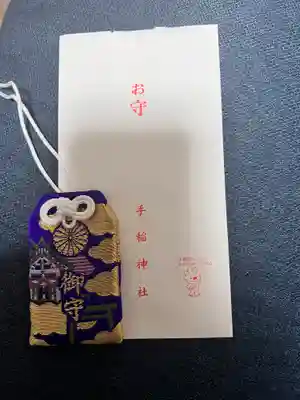 お守
手稲神社
御守